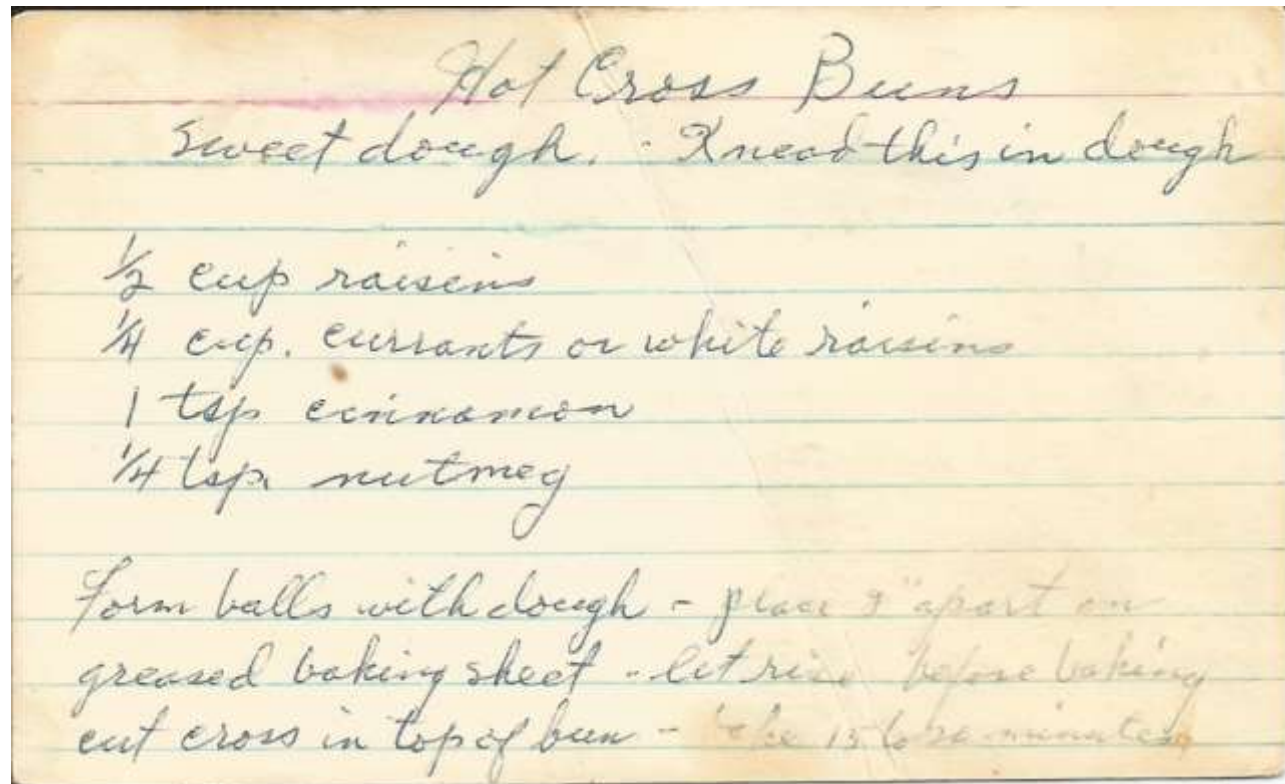 Hot Cross Buns
Sweet dough. - Knead this in dough
1/2 cup raisins
1/4 cup. currants or white raisins
1 tsp cinnamon
1/4 tsp. nutmeg
Form balls with dough - place 2" apart on
greased baking sheet - let rise before baking
cut cross in top of bun - bake 15 to 20 minutes